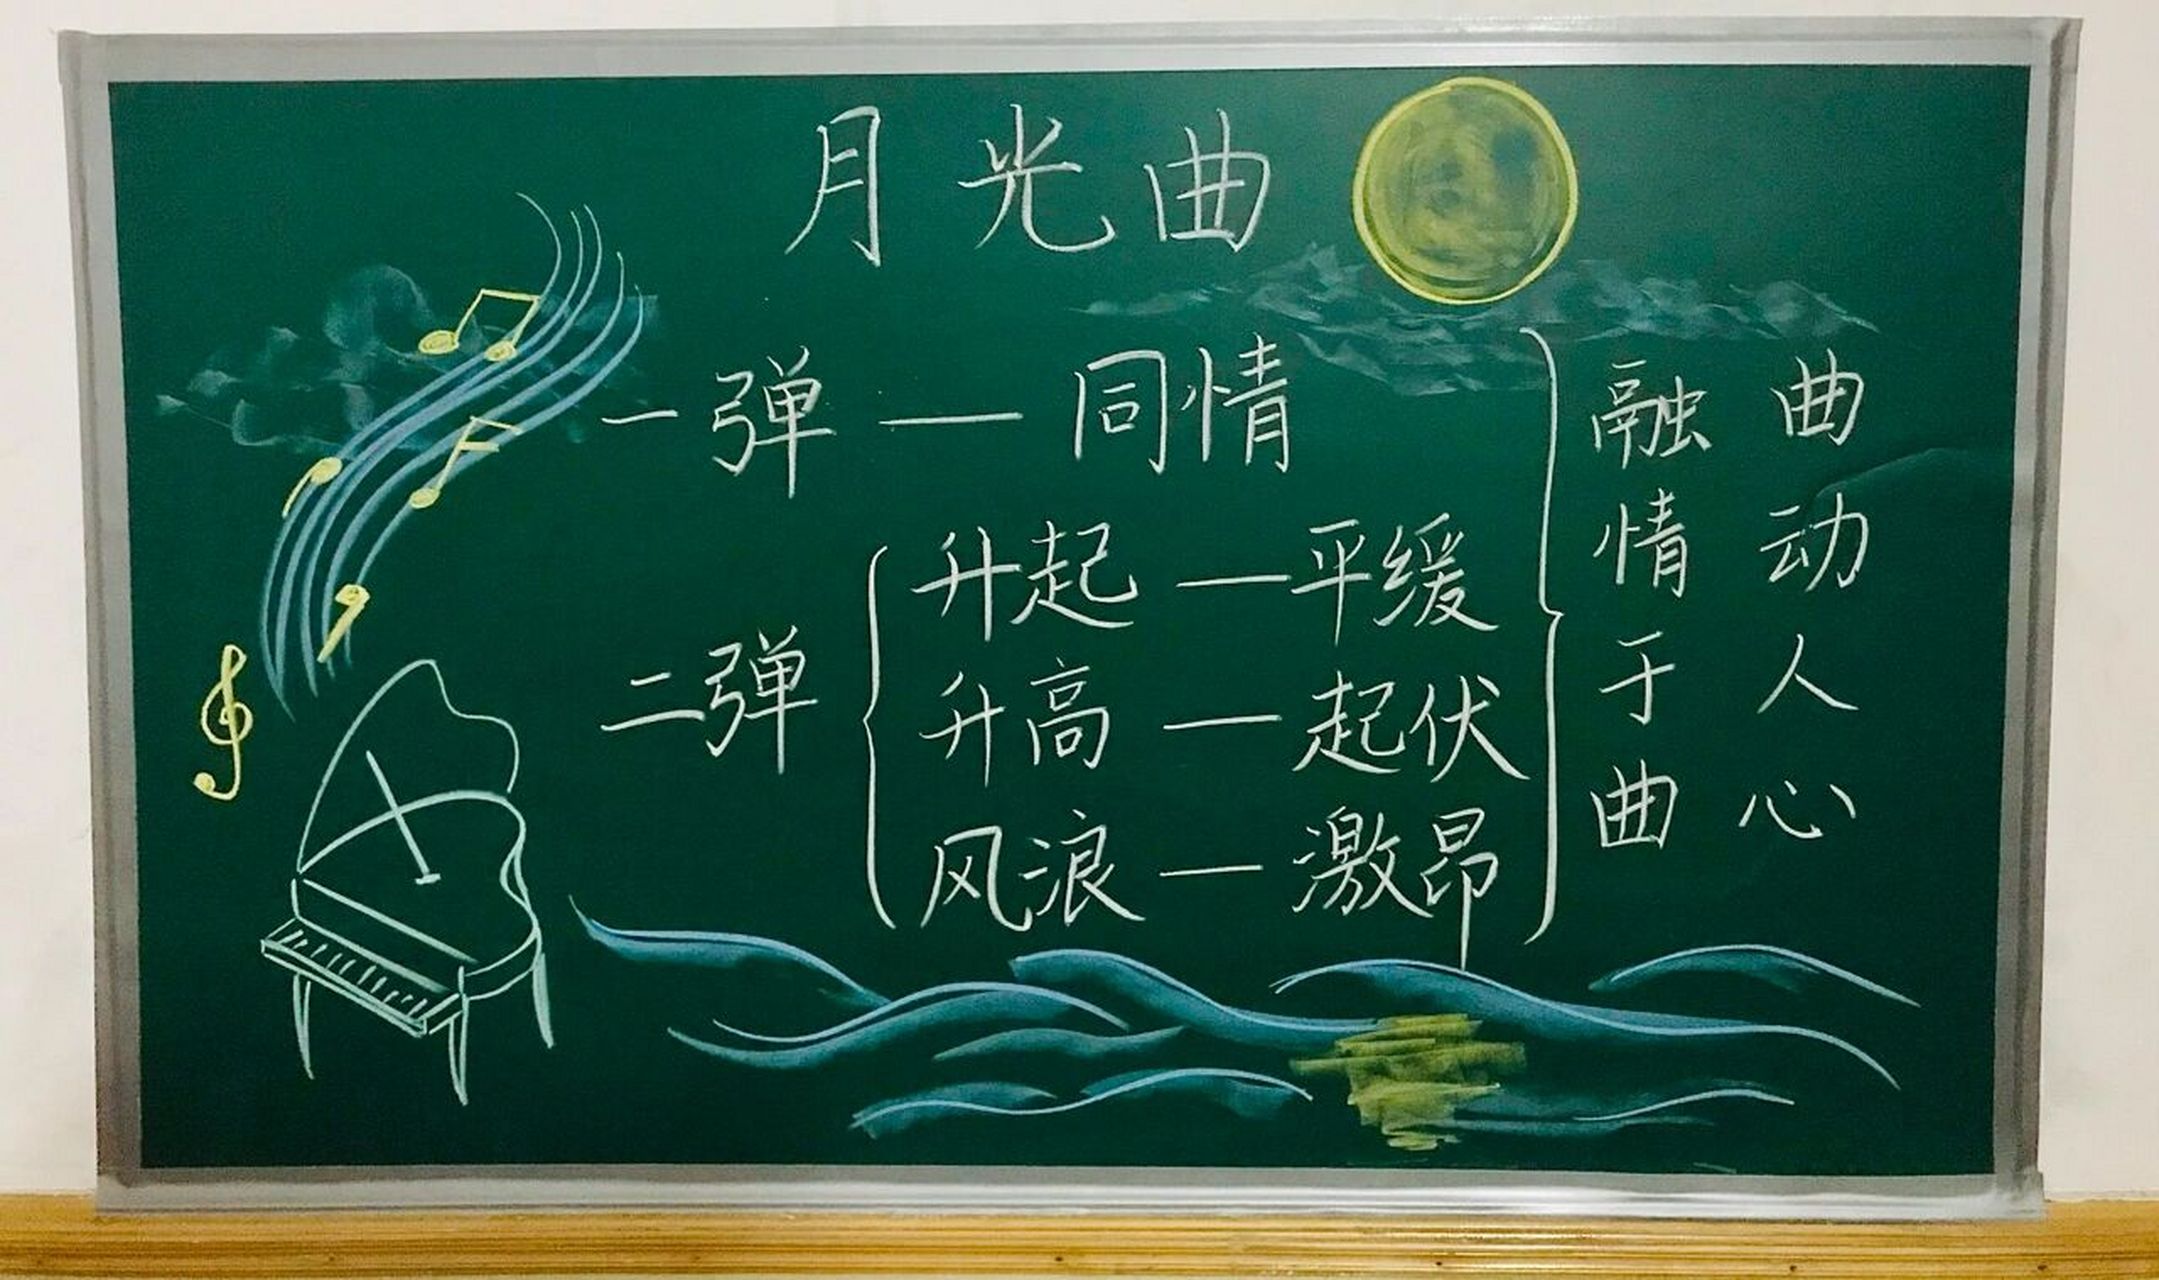 月光曲
一弹—同情
二弹
升起—平缓
升高—起伏
风浪—激昂
融情于曲
曲动人心